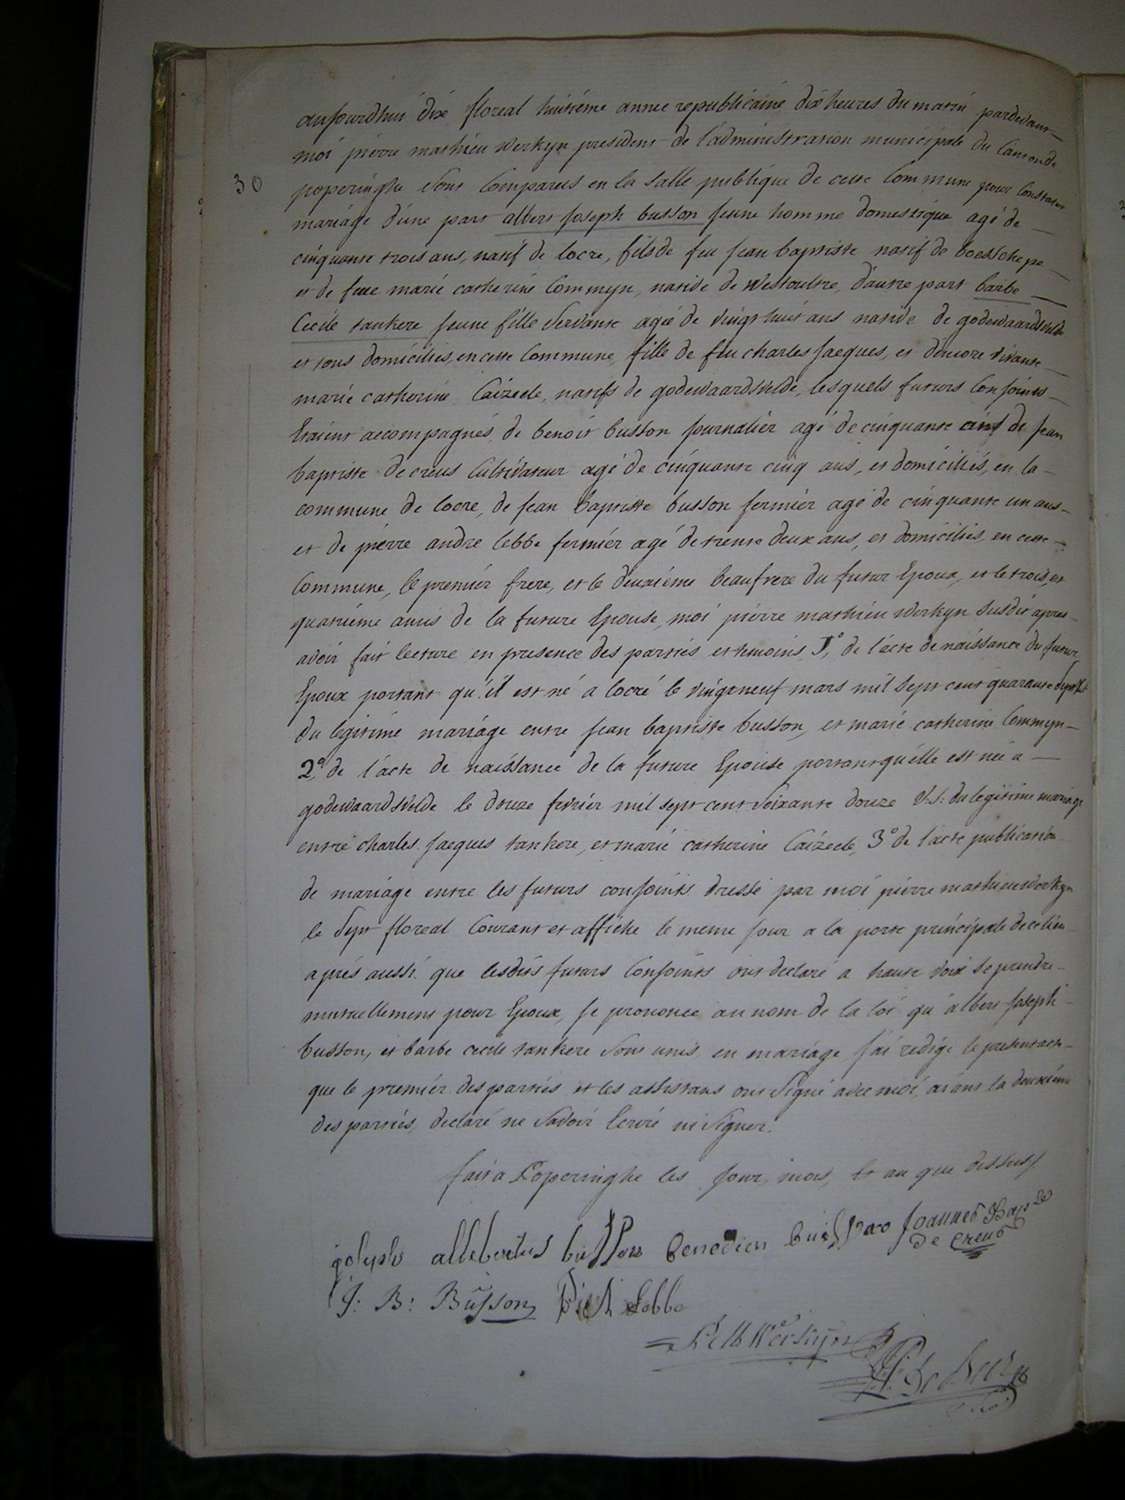 aujourdhui dix floreal huitiéme année republicaine dix heures du matin pardevant
moi pierre mathieu Werkyn president de l'administration municipale du Canton de
30
poperinghe Sont Comparus en la Salle publique de cette Commune pour Constater
mariage d'une part albert Joseph busson Jeune homme domestique agé de
cinquante trois ans, natif de locre, fils de feu Jean baptiste natif de boesschepe
et de feue marie catherine Commyn, native de Westoultre, d'autre part barbe
Cecile tankere Jeune fille Servante agée de vingt huit ans native de godewaardsvelde
et tous domiciliés, en cette Commune, fille de feu charles Jacques, et d'encore vivante
marie catherine Caizeele, natifs de godewaardsvelde, lesquels futurs Conjoints
Etaient accompagnés, de benoit busson Journalier agé de cinquante cinq de Jean
baptiste decreus Cultivateur agé de cinquante cinq ans, et domiciliés, en la
commune de locre, de Jean baptiste busson fermier agé de cinquante un ans
et de pierre andre lebbe fermier agé de trente deux ans, et domiciliés en cette
Commune, le premier frere, et le deuxiéme beaufrere du futur Epoux, et le trois, et
quatriéme amis de la future Epouse, moi pierre mathieu Werkyn susdit apres
avoir fait lecture en presence des parties et temoins 1°, de l'acte de naissance du futur
Epoux portant qu'il est né a locre le vingtneuf mars mil sept cent quarante sept V.S.
du legitime mariage entre Jean baptiste busson, et marie catherine Commyn
2° de l'acte de naissance de la future Epouse portant qu'elle est née a
godewaardsvelde le douze fevrier mil sept cent Soixante douze V.S. du legitime mariage
entre charles Jacques tankere, et marie catherine Caizeele, 3° de l'acte publication
de mariage entre les futurs conjoints dressé par moi pierre mathieu Werkyn
le Sept floreal Courant et affiché le meme Jour a la porte principale de ce lieu
aprés aussi que lesdits futurs Conjoints ont declaré a haute voix se prendre
mutuellement pour Epoux, Je prononce au nom de la loi qu'albert Joseph
busson, et barbe cecile tankere Sont unis en mariage J'ai redigé le present acte
que le premier des parties et les assistans ont Signé avec moi, aiant la deuxiéme
des parties, declaré ne Savoir Ecrire ni Signer.
fait a Poperinghe les Jour, mois, et an que dessus
Josepho allebertus busson Joannes Bapte
de Creus
J: B: Busson Lebbe
P M Werkyn